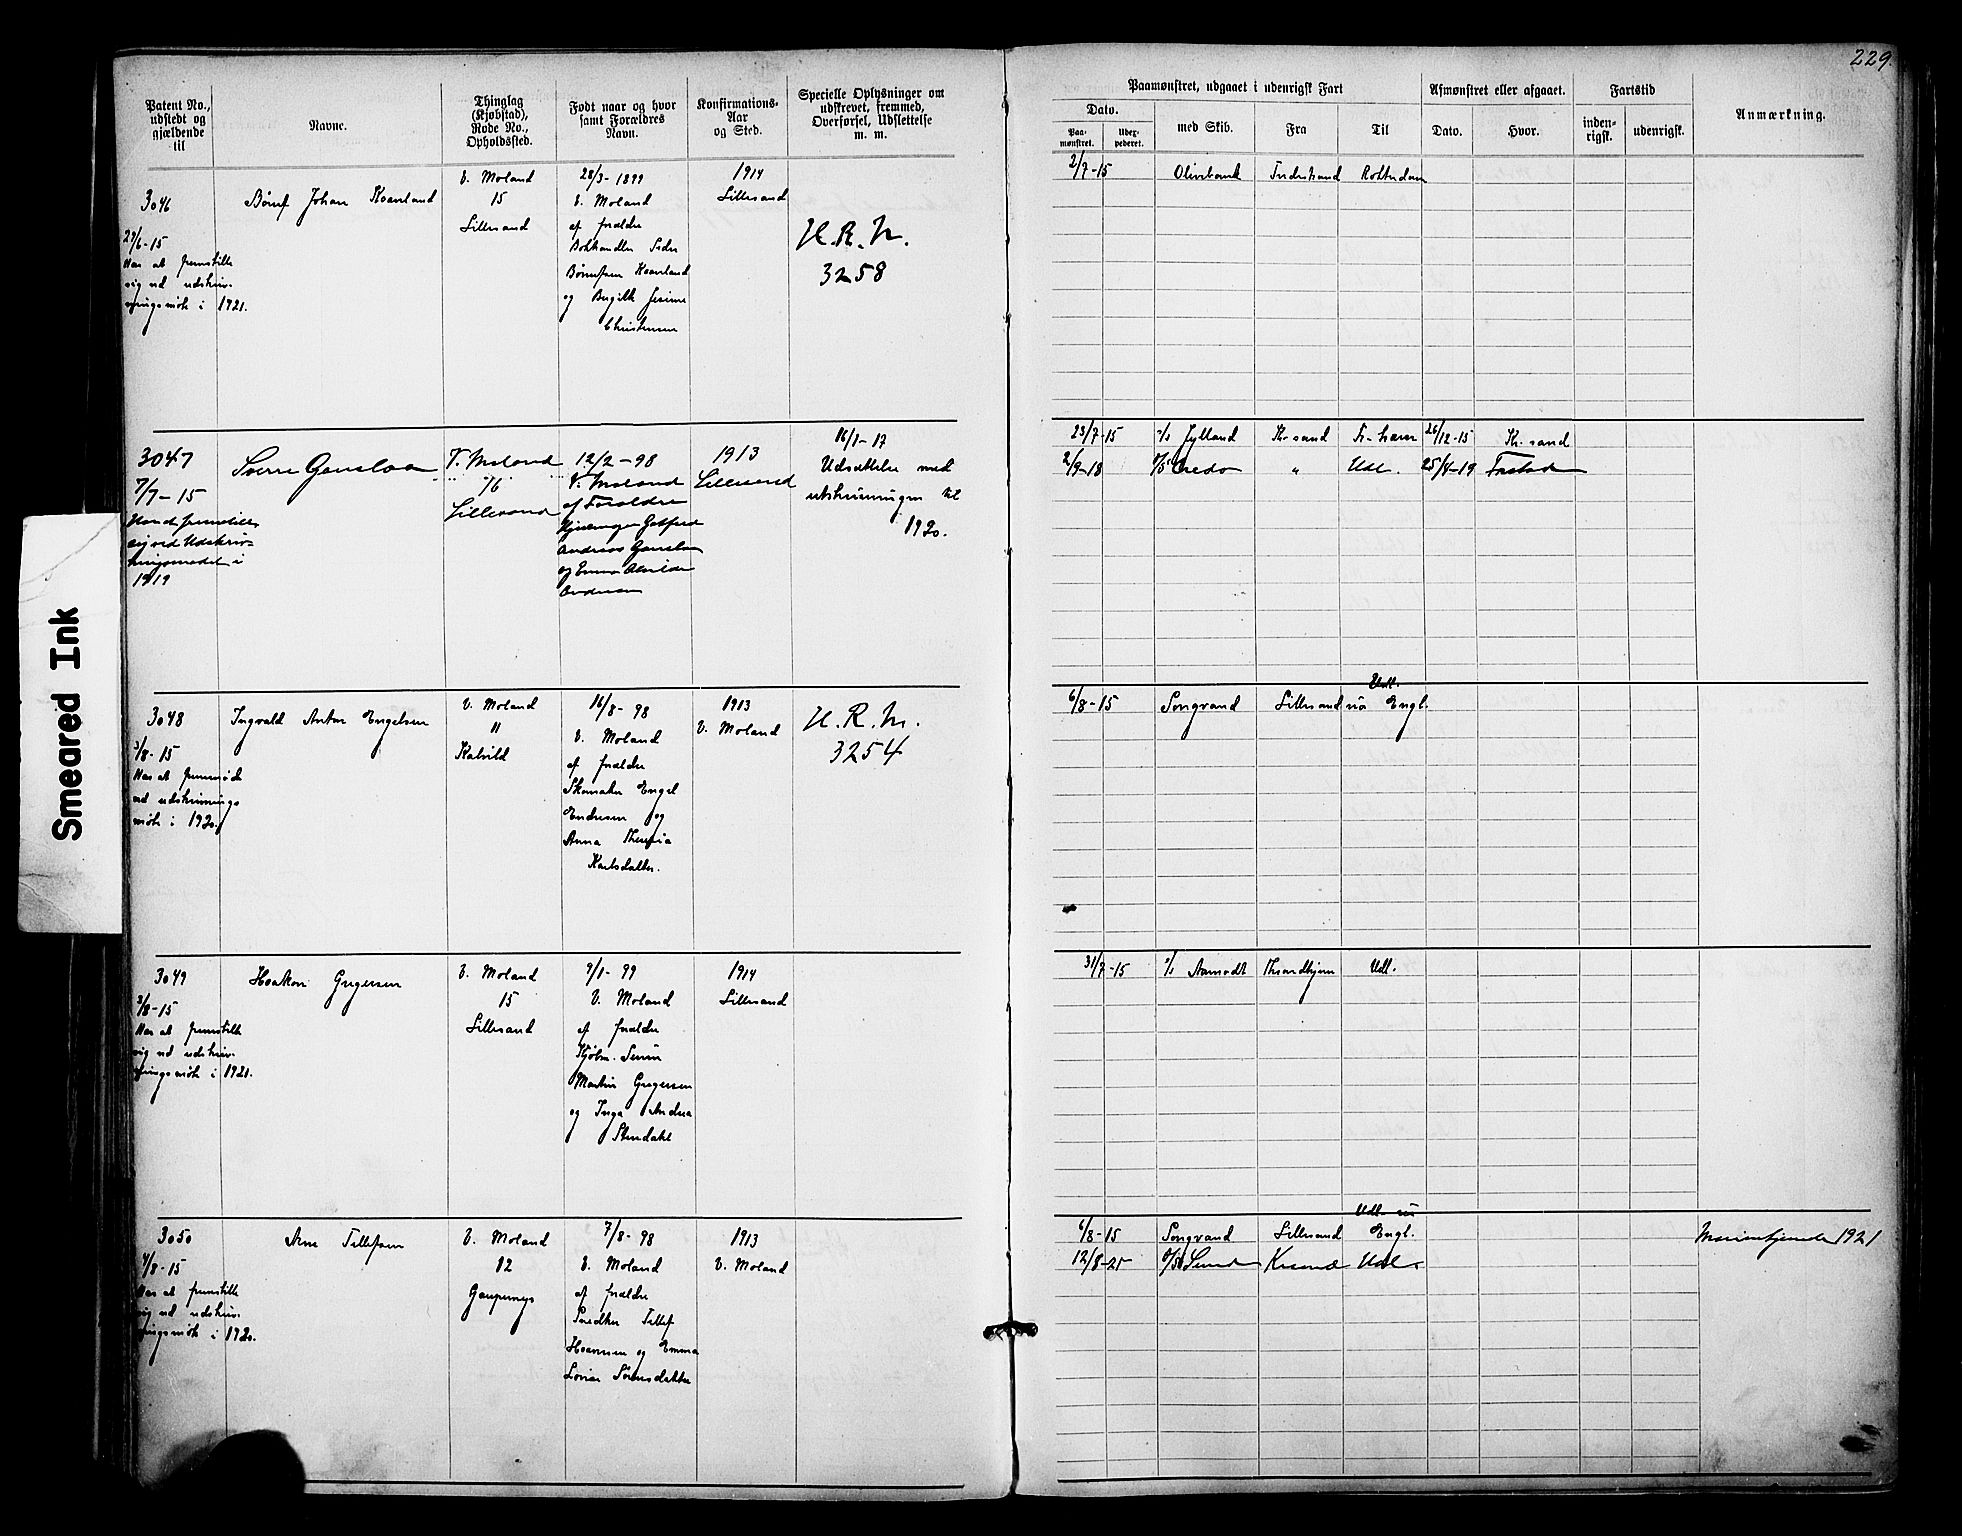 229.
Patent No.,
udstedt og
gjældende
til
Navne.
Thinglag
(Kjøbstad),
Rode No.,
Opholdssted.
Født naar og hvor
samt Forældres
Navn.
Konfirmations-
Aar
og Sted.
Specielle Oplysninger om
udskrevet, fremmed,
Overførsel, Udslettelse
m. m.
Paamønstret, udgaaet i udenrigsk Fart
Dato.
Paa-
mønstret.
Uder-
pederet.
med Skib.
Fra
Til
Afmønstret eller afgaaet.
Dato.
Hvor.
Fartstid
inden-
rigsk.
udenrigsk.
Anmærkning.
3046
29/6-15
Har at fremstille
sig ved udskriv-
ningsmøte i 1921.
Johan Kaarland
V. Moland
15
Lillesand
28/3-1899
V. Moland
af forældre
og
Christensen
1914
Lillesand
H. R. M.
3258
2/7-15
Olivebank
Fredrikstad
Rotterdam
3047
7/7-15
Har at fremstille
sig ved Udskriv-
ningsmødet i
1919
Sverre Gauslaa
V. Moland
16
Lillesand
12/2-98
V. Moland
af Forældre
Andreas Gauslaa
og Emma
Andersen
1913
Lillesand
16/1-17
Udsættelse med
utskrivningen til
1920.
23/7-15
s/s Jylland
Kr.sand
Fr-havn
26/12-15
Kr.sand
2/9-18
Credo
"
Udl.
25/8-19
3048
3/8-15
Har at fremmøde
ved udskrivnings
møte i 1920.
Ingvald Anton Engelsen
V. Moland
11
Kalvild
16/8-98
V. Moland
af forældre
Skomaker Engel
Endresen og
Anna Theresia
Karlsdatter.
1913
V. Moland
H. R. M.
3254
6/8-15
Songvand
Lillesand
Udl.
via Engl.
3049
3/8-15
Har at fremstille
sig ved udskriv-
ningsmøte i 1921.
Haakon Gregersen
V. Moland
15
Lillesand
9/1-99
V. Moland
af forældre
Martin Gregersen
og Inga Andrea
Stendahl
1914
Lillesand
31/7-15
s/s Aamodt
Throndhjem
Udl.
3050
4/8-15
Har at fremstille
sig ved udskriv-
ningsmøte i 1920.
Arne Tellefsen
V. Moland
12
Gaupemyr
7/8-98
V. Moland
af forældre
Snedker Tellef
Hansen og Emma
Lovise Sørensdatter
1913
V. Moland
6/8-15
Songvand
Lillesand
Udl. via
Engl.
12/8-25
Udl.
Marinetjeneste 1921
Smeared Ink